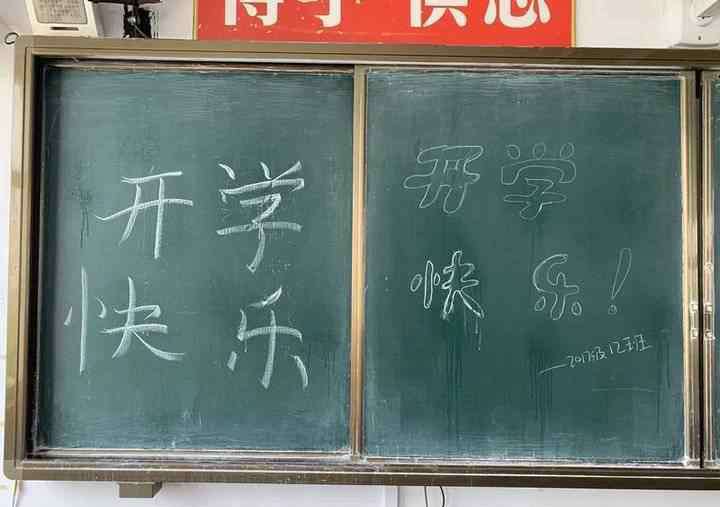 开学
快乐
开学
快乐！
—2017级12班